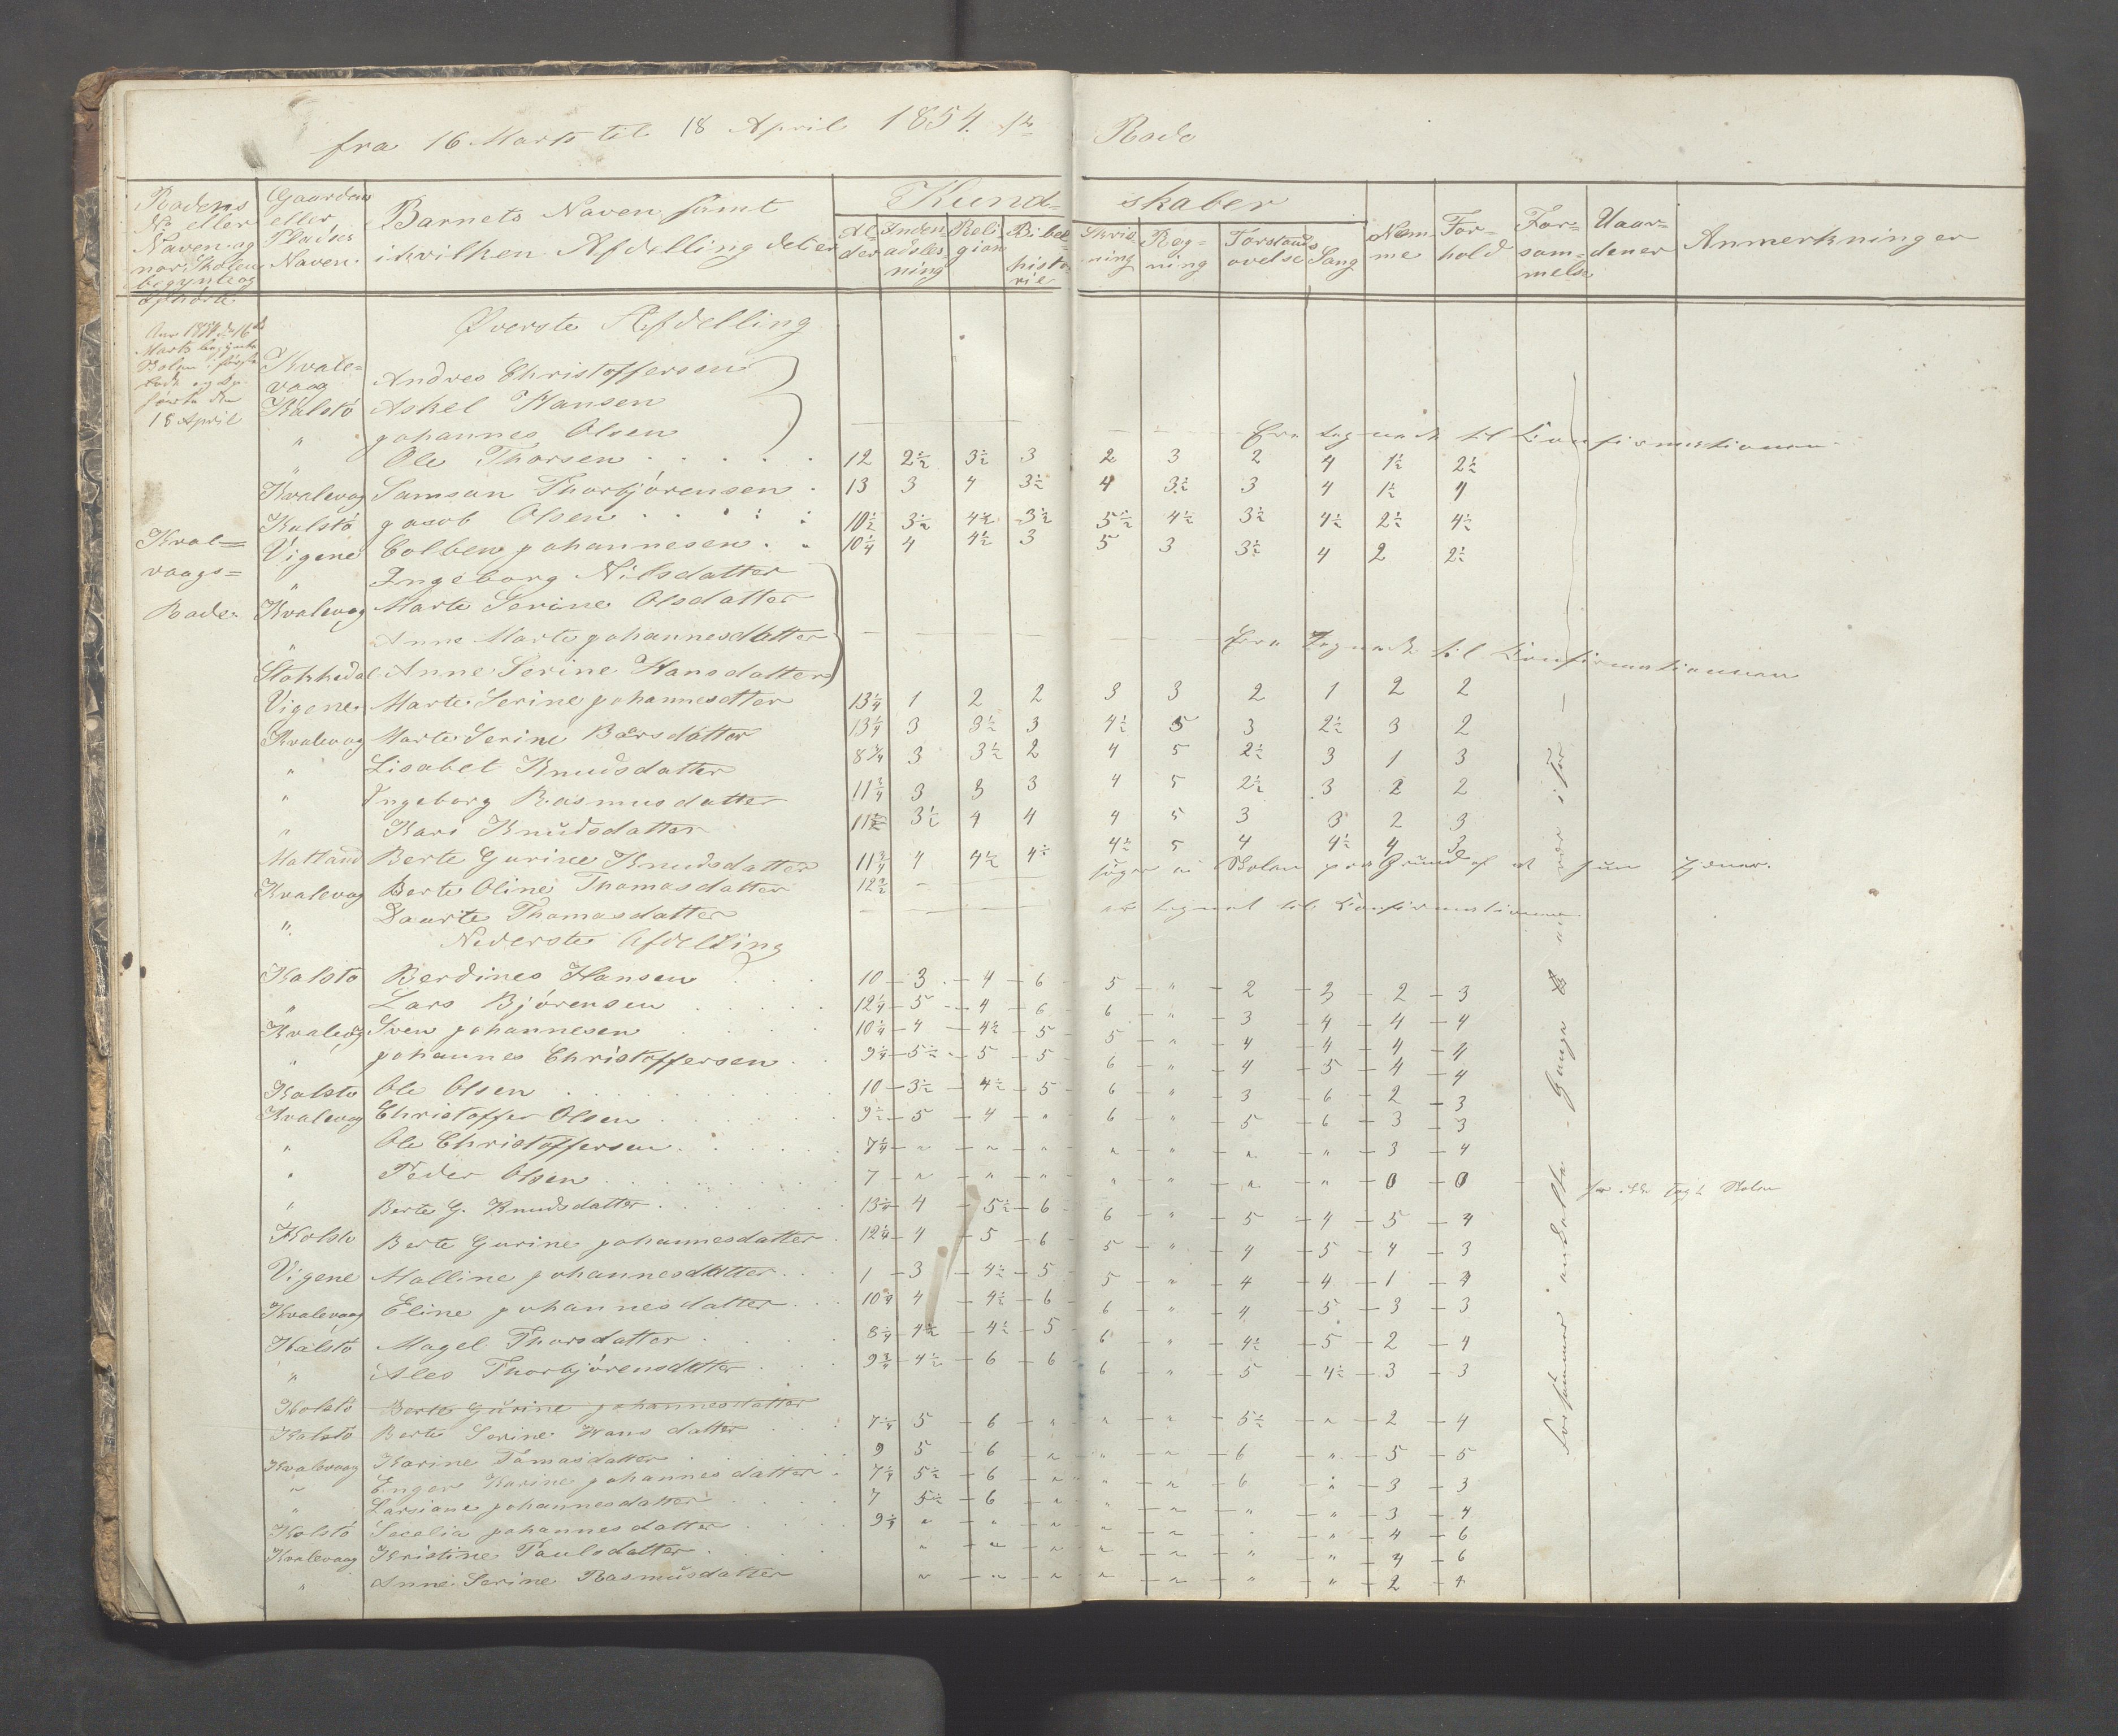 fra 16 Marts til 18 April 1854. Rode
Rodens No eller Naven og nar Skolen begynte og ophørte
Gaardens eller Pladses Naven.
Barnets Naven samt i hvilken Afdelling det er
Kund-skaber
Al-der
Inden-adsles-ning
Reli-gion
Bibel-histo-rie
Skriv-ning
Reg-ning
Forstands ovelse
Sang
Nem-me
For-hold
For-som-melse
Uaar-dener
Anmerkninger
Øverste Afdelling
Aar 1854 d. 16de Marts begynte Skolen i og op-hørte den 18 April
Kvale-vaag Andres Christoffersen
Kalstö Askel Hansen
" Johannes Olsen Ere tegnede til Confirmationen.
" Ole Thorsen 12 2½ 3½ 3 2 3 2 4 1½ 2½
Kvalevag Samson Thorbjörensen 13 3 4 3½ 4 3½ 3 4 1½ 4
Kalstö Jacob Olsen 10½ 3½ 4½ 3½ 5½ 4½ 3½ 4½ 2½ 4½
Kval=vaags=Rode.
Vigene Colben Johannesen 10¼ 4 4½ 3 5 3 3½ 4 2 2½
" Ingeborg Nilsdatter
Kvalevag Marte Serine Olsdatter
" Anne Marte Johannesdatter Ere Tegnede til Confirmationen
Stokkedal Anne Serine Hansdatter
Vigene Marte Serine Johannesdtter 13¼ 1 2 2 3 3 2 1 2 2
Kvalevag Marte Serine Barsdatter 13¼ 3 3½ 3 4½ 5 3 2½ 3 2
" Lisabet Knudsdatter 8¾ 3 3½ 2 4 5 2½ 3 1 3
" Ingeborg Rasmusdatter 11¾ 3 3 3 4 5 2½ 3 2 2
" Kari Knudsdatter 11½ 3½ 4 4 4 5 3 3 2 3
Matland Berte Gurine Knudsdatter 11¾ 4 4½ 4½ 4½ 5 4 4½ 4 3
Kvalevag Berte Oline Thomasdatter 12½ – søger ei Skolen paa Grund af at hun tjener.
" Daarte Thomasdatter er tegnet til Confirmationen.
Nederste Afdelling
Kalsto Berdines Hansen 10 3 4 6 5 " 2 3 2 3
" Lars Bjørensen 12¼ 5 4 6 6 " 3 4 4 4
Kvalevag Sven Johannesen 10¼ 4 4½ 5 5 " 4 4 4 4
" Johannes Christoffersen 9¼ 5½ 5 5 6 " 4 5 4 4
Kalsto Ole Olsen 10 3½ 4½ 5 6 " 3 6 2 3
Kvalevag Christoffer Olsen 9½ 5 4 " 6 " 5 6 3 3
" Ole Christoffersen 7¼ " " " " " " " 3 4
" Peder Olsen 7 " " " " " " " 0 0 har ikke søgt Skolen
" Berte G. Knudsdatter 13¼ 4 5½ 6 6 " 5 4 5 4
Kolsto Berte Gurine Johannesdatter 12¼ 4 5 6 5 " 4 5 4 3
Vigene Malline Johannesdatter 1 3 4½ 5 5 " 4 4 1 4
Kvalevaag Eline Johannesdatter 10¼ 4 4½ 6 6 " 4 5 3 3
Kalstö Magel Thorsdatter 8¼ 4½ 4½ 5 6 " 4½ 5 2 4
" Ales Thorbjörensdatter 9¾ 4½ 6 6 6 " 5 4½ 3 3
Kolstö Berte Gurine Johannesdatter
Kalstö Berte Serine Hans datter 7¼ 5 6 " " " 5½ " 2 4
Kvalevaag Karine Tamasdatter 9 5 6 " " " 6 " 5 5
" Enger Karine Johannes datter 7¼ 5½ 6 " " " 6 " 3 3
" Larsiane Johannesdatter 7 5½ 6 " " " " " 3 4
Kolstö Secelia Johannes datter 9¼ " " " " " " " 4 6
Kvalevaag Kristine Paulsdatter " " " " " " " 4 6
" Anne Serine Rasmusdatter " " " " " " " 2 4